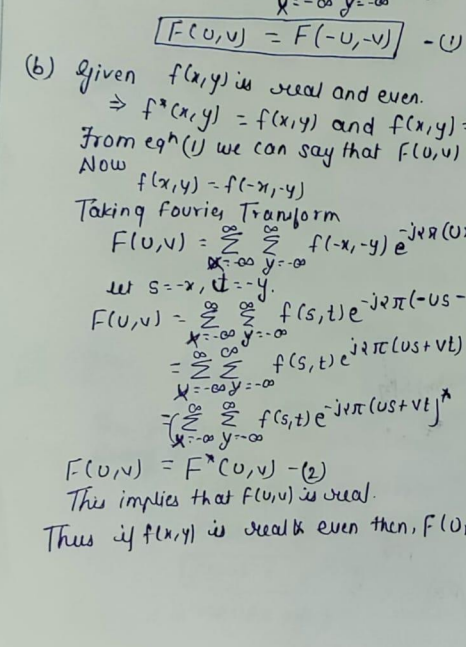 x=-∞ y=-∞
F(u,v) = F(-u,-v) -(1)
(b) Given f(x,y) is real and even.
⇒ f*(x,y) = f(x,y) and f(x,y) =
From eqⁿ(1) we can say that F(u,v)
Now
f(x,y) = f(-x,-y)
Taking Fourier Transform
F(u,v) = ∞Σx=-∞ ∞Σy=-∞ f(-x,-y) e^-j2π(u
let s=-x, t=-y.
F(u,v) = ∞Σx=-∞ ∞Σy=-∞ f(s,t) e^-j2π(-us-
= ∞Σx=-∞ ∞Σy=-∞ f(s,t) e^j2π(us+vt)
=(∞Σx=-∞ ∞Σy=-∞ f(s,t) e^-j2π(us+vt))*
F(u,v) = F*(u,v) -(2)
This implies that F(u,v) is real.
Thus if f(x,y) is real & even then, F(u,